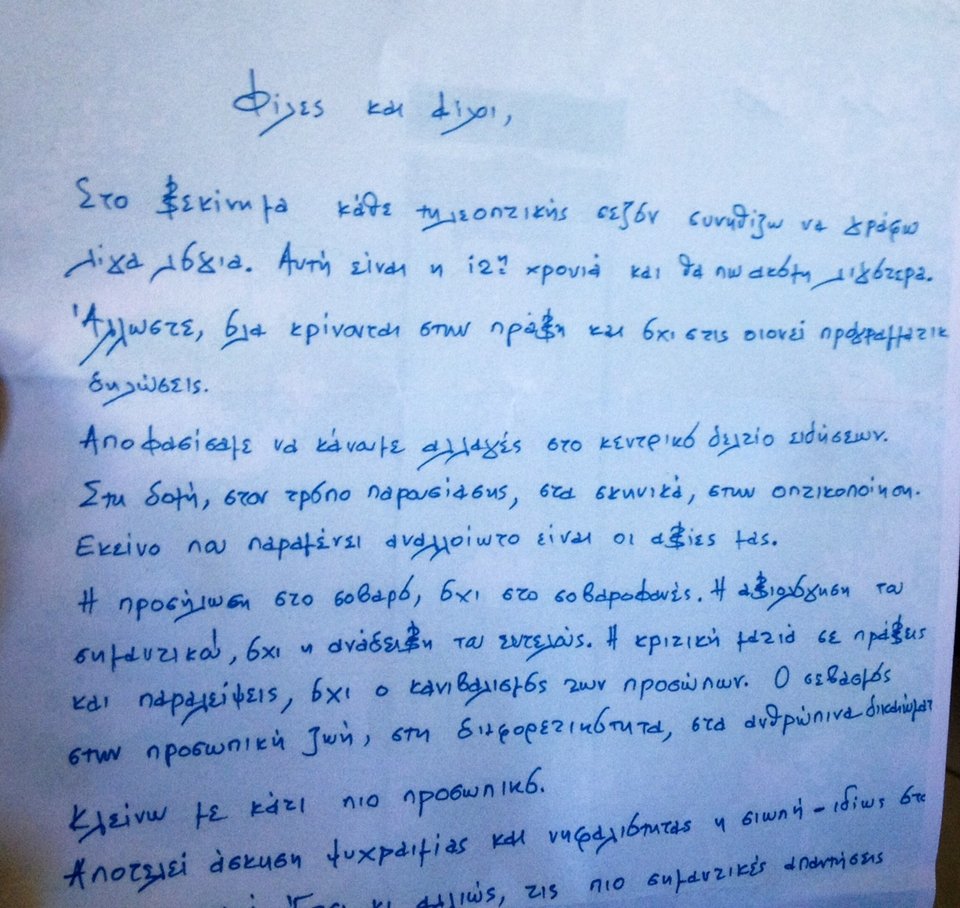 Φίλες και φίλοι,
Στο ξεκίνημα κάθε τηλεοπτικής σεζόν συνηθίζω να γράφω
λίγα λόγια. Αυτή είναι η 12η χρονιά και θα πω ακόμη λιγότερα.
Άλλωστε, όλα κρίνονται στην πράξη και όχι στις οιονεί προγραμματικ
δηλώσεις.
Αποφασίσαμε να κάνουμε αλλαγές στο κεντρικό δελτίο ειδήσεων.
Στη δομή, στον τρόπο παρουσίασης, στα σκηνικά, στην οπτικοποίηση.
Εκείνο που παραμένει αναλλοίωτο είναι οι αξίες μας.
Η προσήλωση στο σοβαρό, όχι στο σοβαροφανές. Η αξιολόγηση του
σημαντικού, όχι η ανάδειξη του ευτελούς. Η κριτική ματιά σε πράξεις
και παραλείψεις, όχι ο κανιβαλισμός των προσώπων. Ο σεβασμός
στην προσωπική ζωή, στη διαφορετικότητα, στα ανθρώπινα δικαιώματ
Κλείνω με κάτι πιο προσωπικό.
Αποτελεί άσκηση ψυχραιμίας και νηφαλιότητας η σιωπή - ιδίως στ
κι αλλιώς, τις πιο σημαντικές απαντήσεις